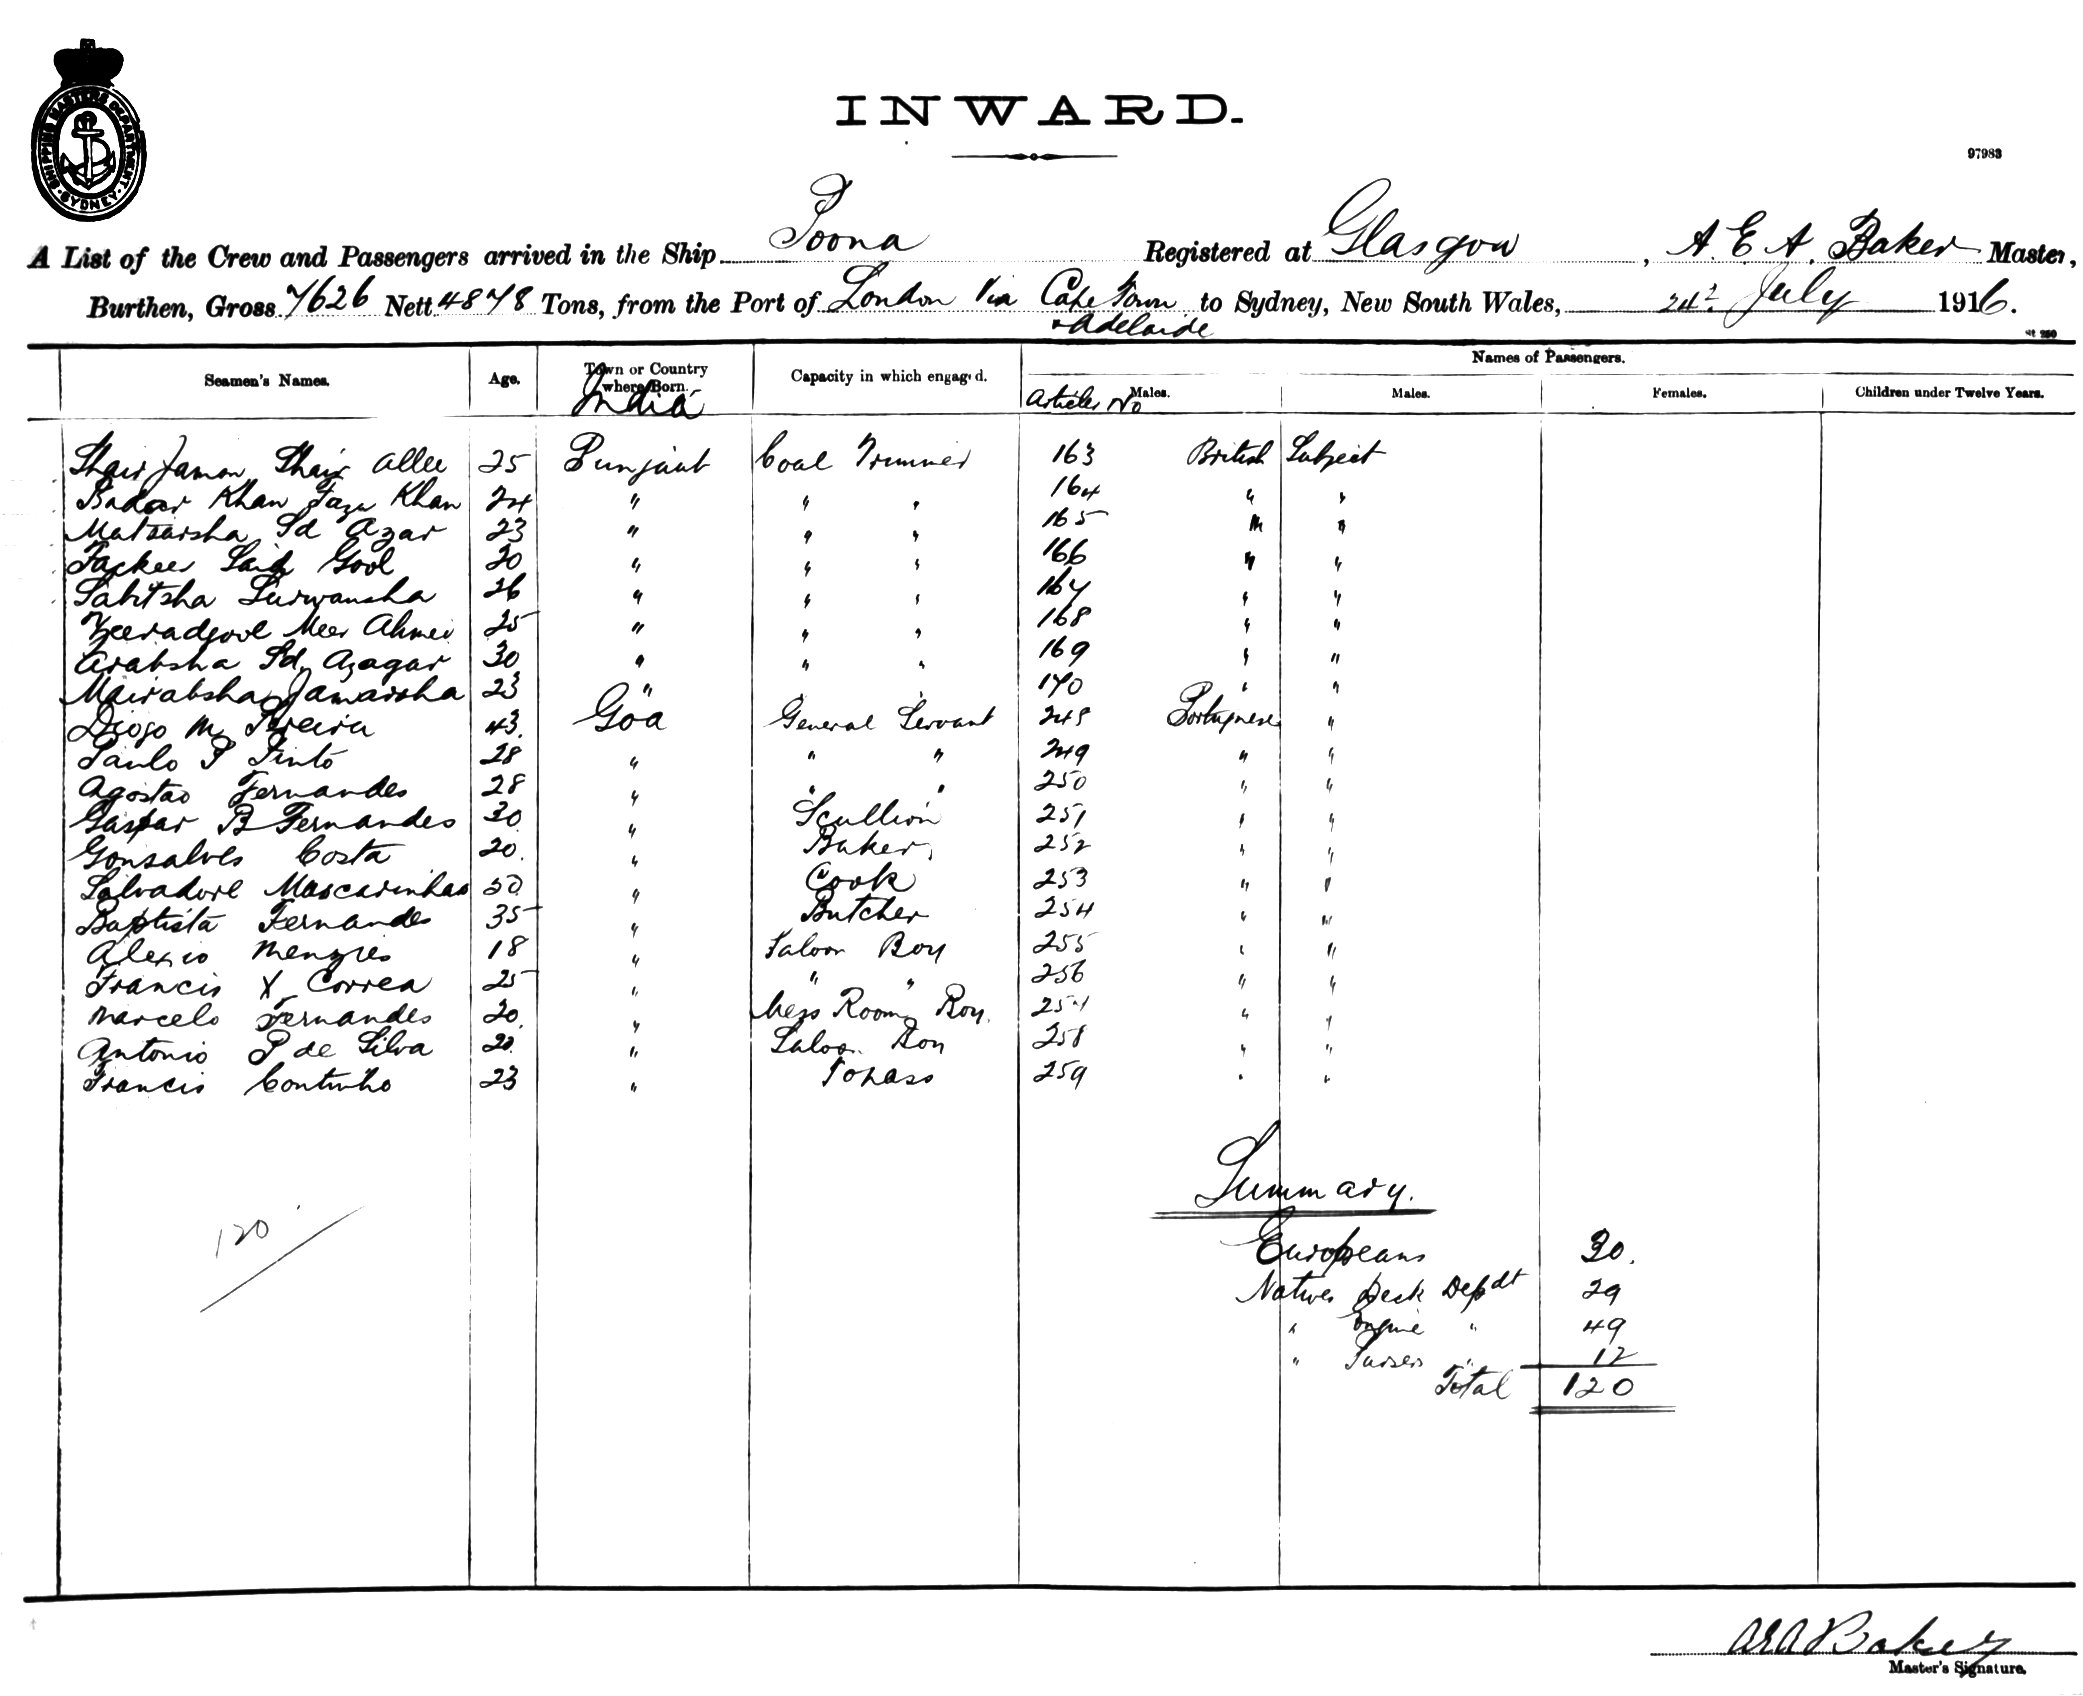 SHIPPING MASTERS DEPARTMENT SYDNEY
INWARD.
97983
A List of the Crew and Passengers arrived in the Ship Poona Registered at Glasgow, A. E. A. Baker Master,
Burthen, Gross 7626 Nett 4878 Tons, from the Port of London Via Cape Town to Sydney, New South Wales, 24th July 1916.
+ Adelaide
St 250
Seamen's Names. Age. Town or Country where Born. Capacity in which engaged. Names of Passengers.
India Articles No Males. Males. Females. Children under Twelve Years.
Shair Jaman Shair Allee 25 Punjaub Coal Trimmer 163 British Subject
Badar Khan Khan 24 " " " 164 " "
Sd Azar 23 " " " 165 " "
Fackeer Said Gool 20 " " " 166 " "
Sabitsha 26 " " " 167 " "
Meer 25 " " " 168 " "
Arabsha Sd 30 " " " 169 " "
Mairabsha Jamarsha 23 " 170 " "
Diogo M Pereira 43 Goa General Servant 248 Portuguese "
Paulo P Pinto 28 " " " 249 " "
Agostao Fernandes 28 " " " 250 " "
Gaspar B Fernandes 30 " Scullion 251 " "
Gonsalves Costa 20 " Baker 252 " "
Salvadore Mascarinhas 50 " Cook 253 " "
Baptista Fernandes 35 " Butcher 254 " "
Alexio Menezes 18 " Saloon Boy 255 " "
Francis X Correa 25 " " " 256 " "
Marcelo Fernandes 20 " Mess Room Boy. 257 " "
Antonio P de Silva 20 " Saloon Boy 258 " "
Francis Coutinho 23 " Topass 259 " "
Summary.
120
Europeans 30.
Natives Deck Depdt 29
" Engine " 49
" Pursers " 12
Total 120
AEA Baker
Master's Signature.